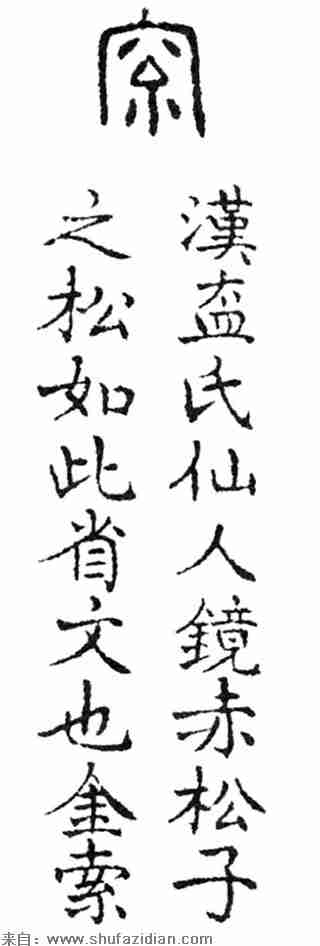 漢盇氏仙人鏡赤松子
之松如此省文也金索
来自：www.shufazidian.com